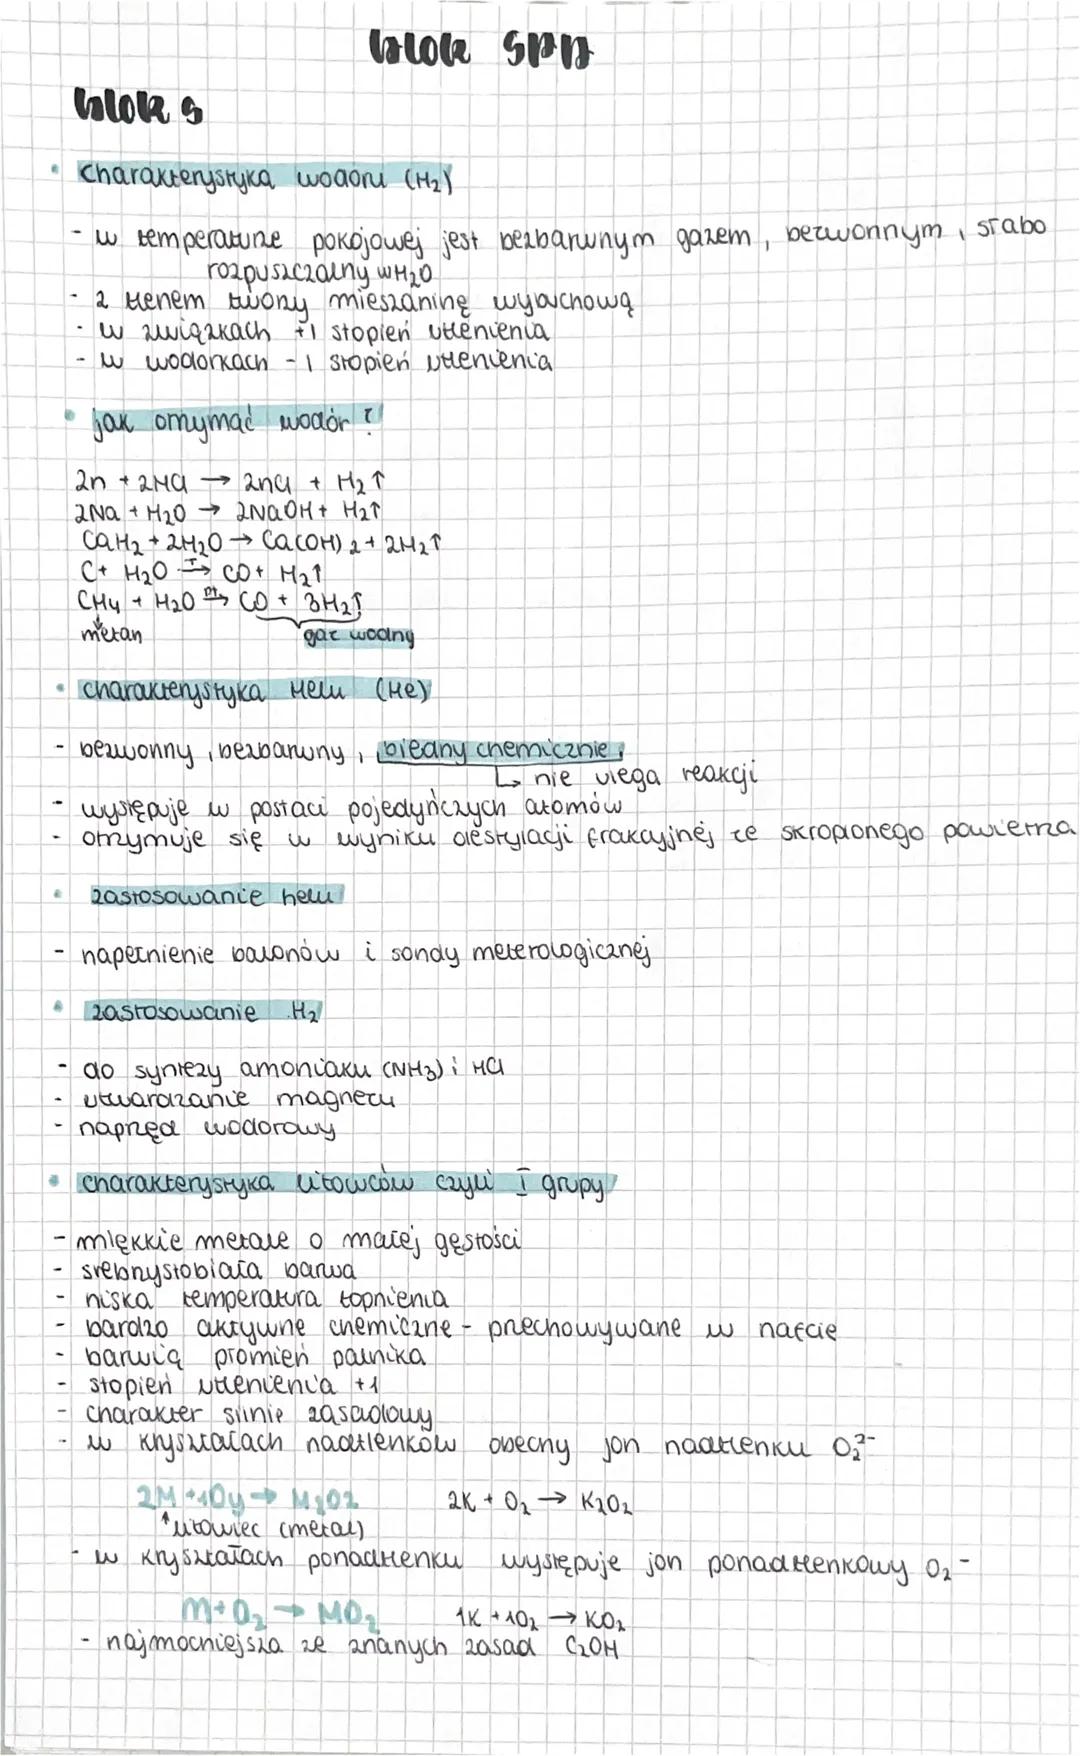 blok SPD
blok s
• charakterystyka wodoru (H₂)
- w temperaturze pokojowej jest bezbarwnym gazem, bezwonnym, słabo
rozpuszczalny w H₂O
- z tlenem tworzy mieszaninę wybuchową
- w związkach +1 stopień utlenienia
- w wodorkach -1 stopień utlenienia
• jak otrzymać wodór?
Zn + 2HCl → ZnCl + H₂↑
2Na + H₂O → 2NaOH + H₂↑
CaH₂ + 2H₂O → Ca(OH)₂ + 2H₂↑
C + H₂O –T→ CO + H₂↑
CH₄ + H₂O –pt→ CO + 3H₂↑
metan gaz wodny
• charakterystyka Helu (He)
- bezwonny, bezbarwny, bierny chemicznie,
↳ nie ulega reakcji
- występuje w postaci pojedyńczych atomów
- otrzymuje się w wyniku destylacji frakcyjnej ze skroplonego powietrza
• zastosowanie helu
- napełnienie balonów i sondy meterologicznej
• zastosowanie H₂
- do syntezy amoniaku (NH₃) i HCl
- utwardzanie magnezu
- napręd wodorowy
• charakterystyka litowców czyli I grupy
- miękkie metale o małej gęstości
- srebrzystobiała barwa
- niska temperatura topnienia
- bardzo aktywne chemiczne - przechowywane w nafcie
- barwią promień palnika
- stopień utlenienia +1
- charakter silnie zasadowy
- w kryształach nadtlenków obecny jon nadtlenku O₂²⁻
2M + 1Oy → M₂O₂ 2K + O₂ → K₂O₂
↑ litowiec (metal)
- w kryształach ponadtlenku występuje jon ponadtlenkowy O₂⁻
M + O₂ → MO₂ 1K + 1O₂ → KO₂
- najmocniejsza ze znanych zasad CzOH